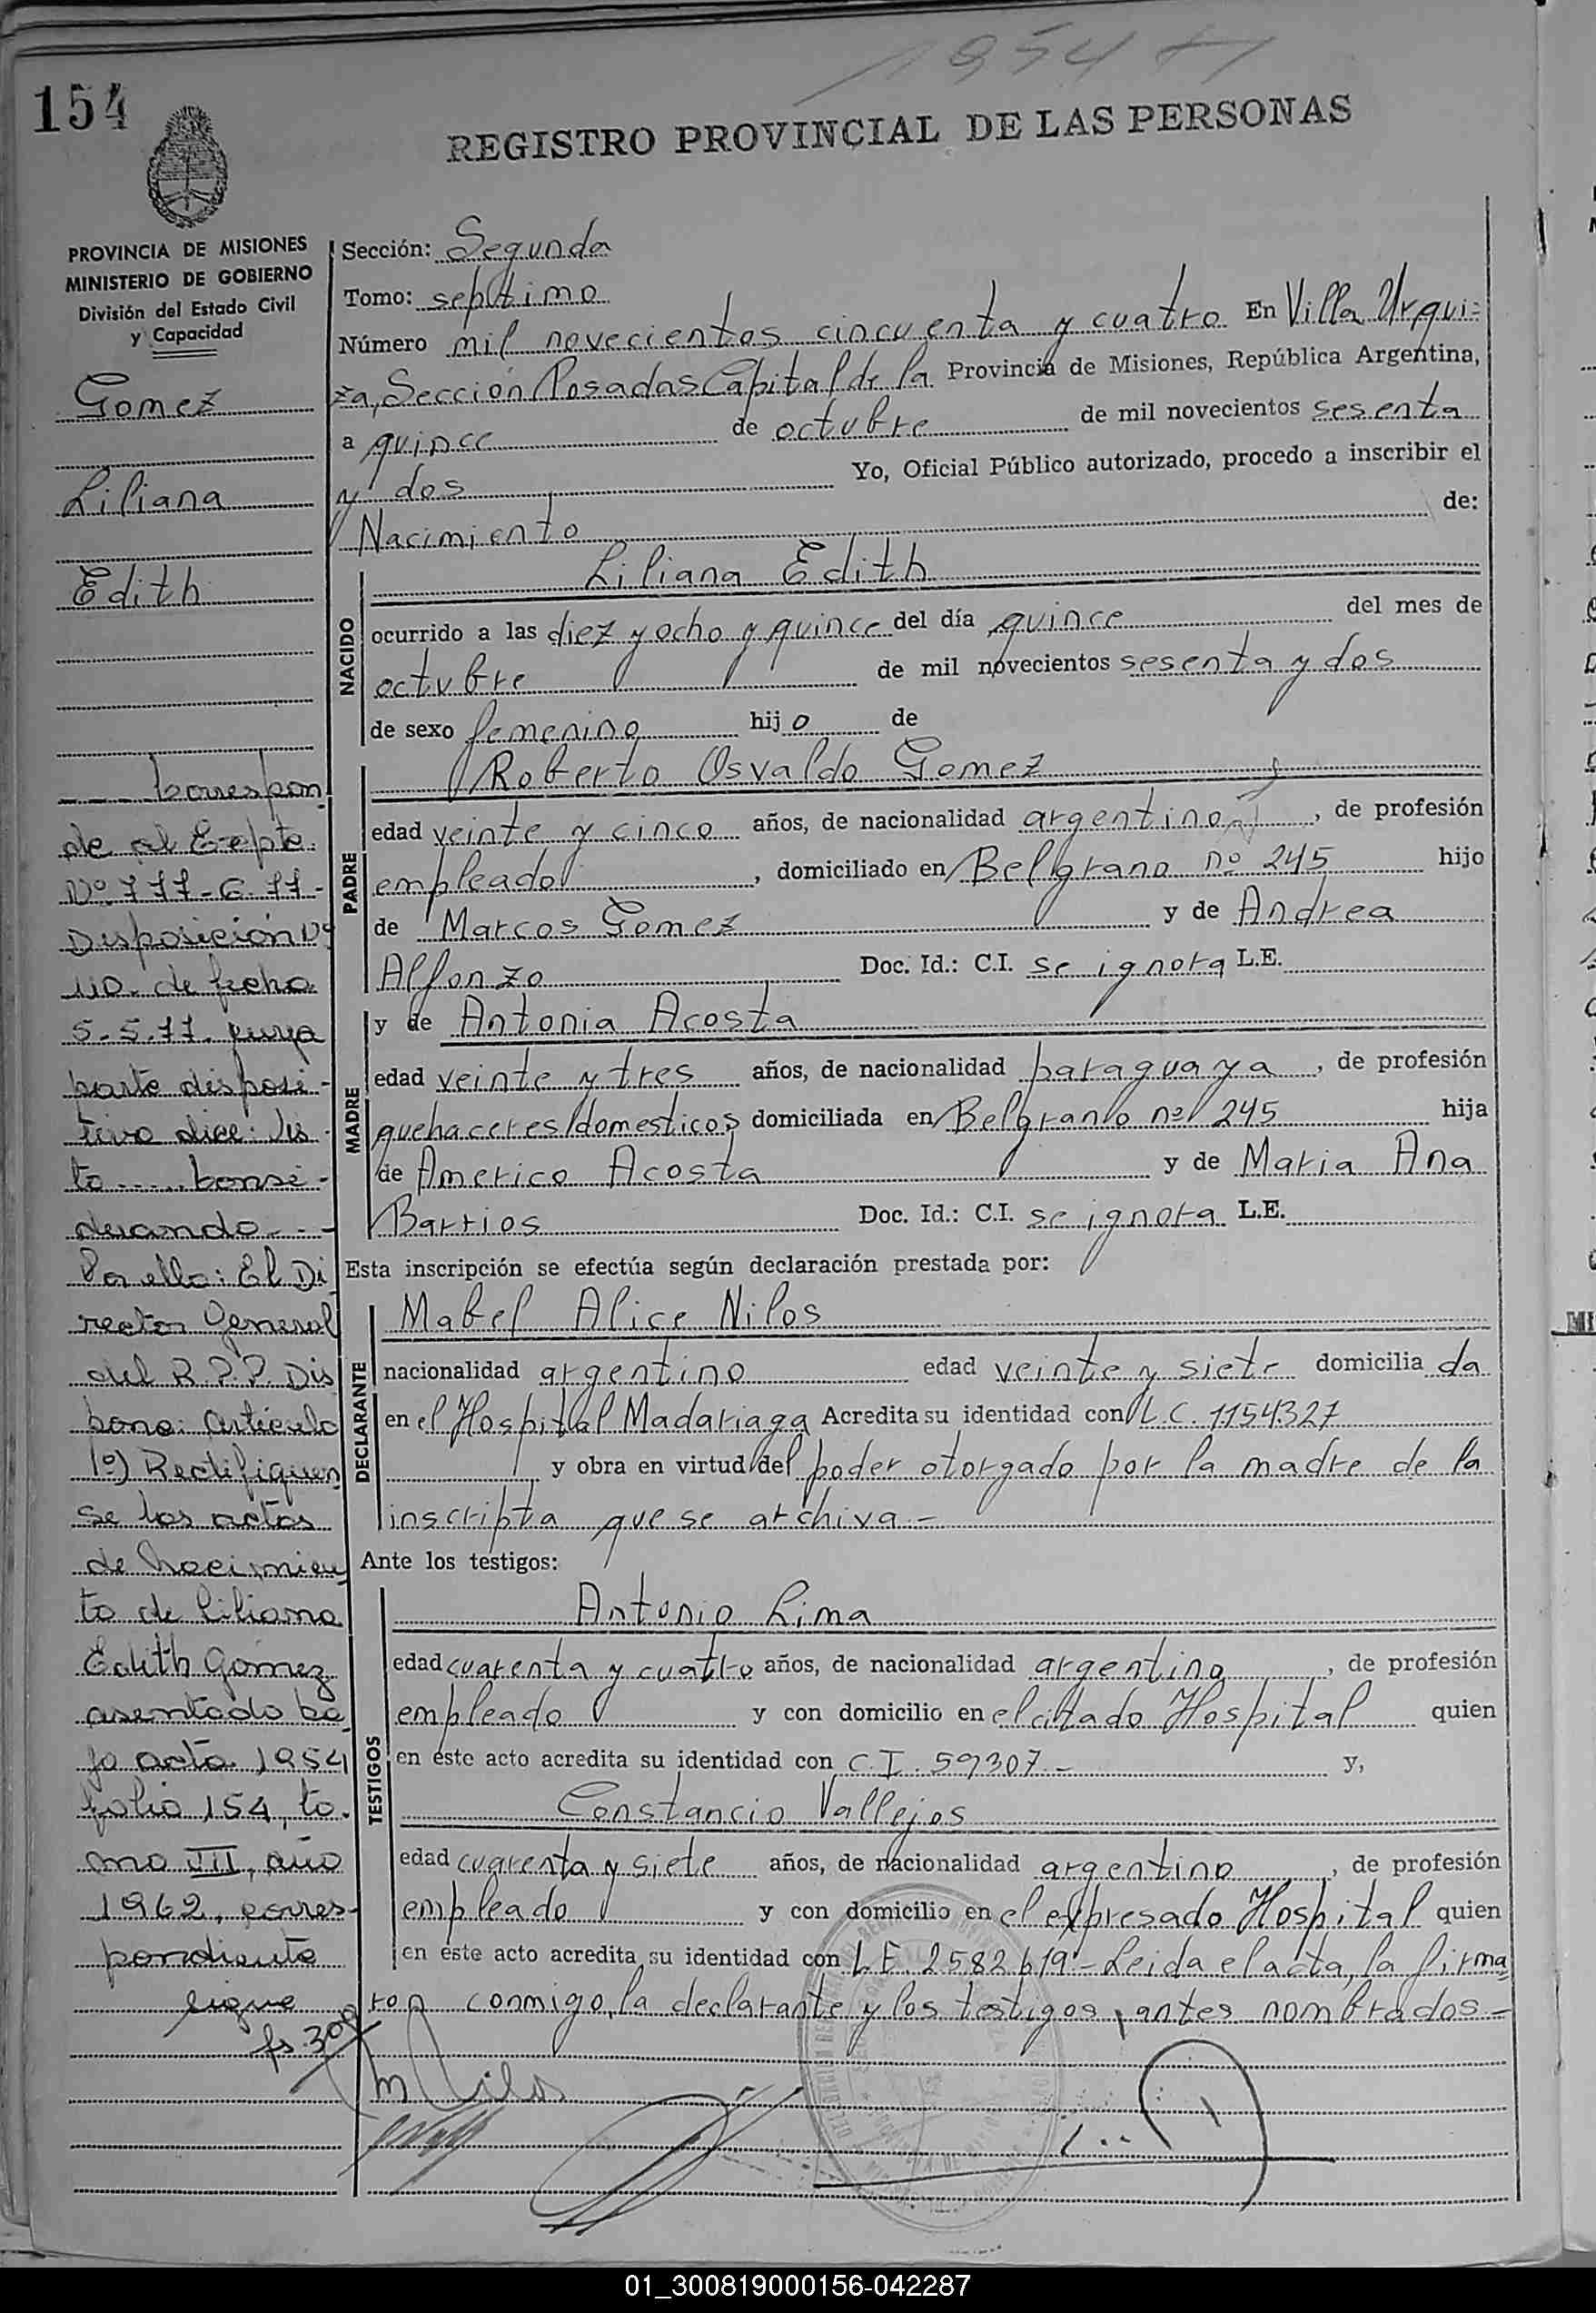 1954
154
REGISTRO PROVINCIAL DE LAS PERSONAS
PROVINCIA DE MISIONES
MINISTERIO DE GOBIERNO
División del Estado Civil
y Capacidad
Gomez
Liliana
Edith
Correspon
de al Expte.
Nº 777-G-77-
Disposición Nº
110. de fecha
5-5-77. cuya
parte disposi-
tiva dice: Vis
to.....Consi-
derando...
Por ello: El Di
rector General
del R.P.P. Dis
pone: Artículo
1º) Rectifiquen
se las actas
de Nacimien
to de Liliana
Edith Gómez
asentado ba
jo acta 1954
folio 154, to.
mo VII, año
1962, corres-
pondiente
sigue
fs. 300
Sección: Segunda
Tomo: septimo
Número mil novecientos cincuenta y cuatro En Villa Urqui=
za, Sección Posadas Capital de la Provincia de Misiones, República Argentina,
a quince de octubre de mil novecientos sesenta
y dos Yo, Oficial Público autorizado, procedo a inscribir el
Nacimiento de:
NACIDO
Liliana Edith
ocurrido a las diez y ocho y quince del día quince del mes de
octubre de mil novecientos sesenta y dos
de sexo femenino hijo de
PADRE
Roberto Osvaldo Gomez
edad veinte y cinco años, de nacionalidad argentino, de profesión
empleado, domiciliado en Belgrano nº 245 hijo
de Marcos Gomez y de Andrea
Alfonzo Doc. Id.: C.I. se ignora L.E.
MADRE
y de Antonia Acosta
edad veinte y tres años, de nacionalidad paraguaya, de profesión
quehaceres domesticos domiciliada en Belgrano nº 245 hija
de Americo Acosta y de Maria Ana
Barrios Doc. Id.: C.I. se ignora L.E.
Esta inscripción se efectúa según declaración prestada por:
DECLARANTE
Mabel Alice Nilos
nacionalidad argentino edad veinte y siete domiciliada
en el Hospital Madariaga Acredita su identidad con L.C. 1154327
y obra en virtud del poder otorgado por la madre de la
inscripta que se archiva.-
Ante los testigos:
TESTIGOS
Antonio Lima
edad cuarenta y cuatro años, de nacionalidad argentino, de profesión
empleado y con domicilio en el citado Hospital quien
en este acto acredita su identidad con C.I. 59307.- y,
Constancio Vallejos
edad cuarenta y siete años, de nacionalidad argentino, de profesión
empleado y con domicilio en el expresado Hospital quien
en este acto acredita su identidad con L.E. 2582619.- Leida el acta, la firma
ron conmigo, la declarante y los testigos, antes nombrados.-
01_300819000156-042287